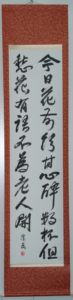 今日花前飲甘心醉数杯但
愁花有語不為老人開